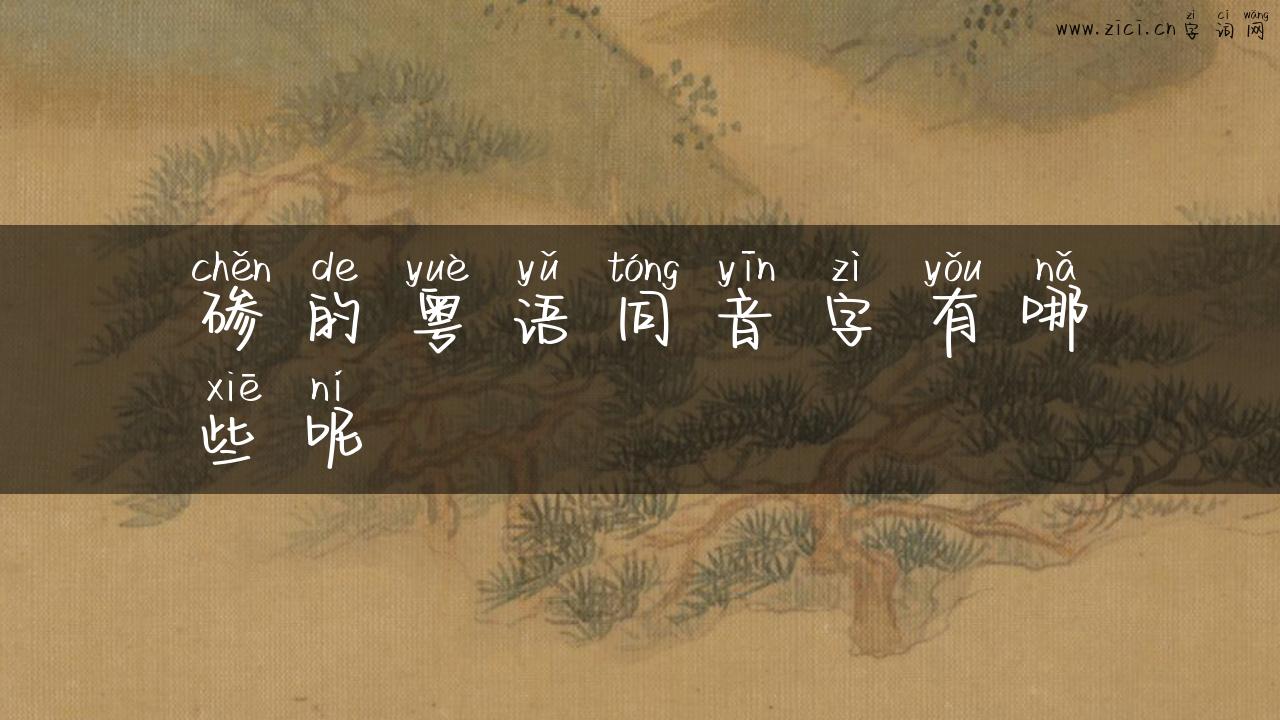 zì cí wǎng
www.zici.cn 字词网
chěn de yuè yǔ tóng yīn zì yǒu nǎ
碜的粤语同音字有哪
xiē ní
些呢